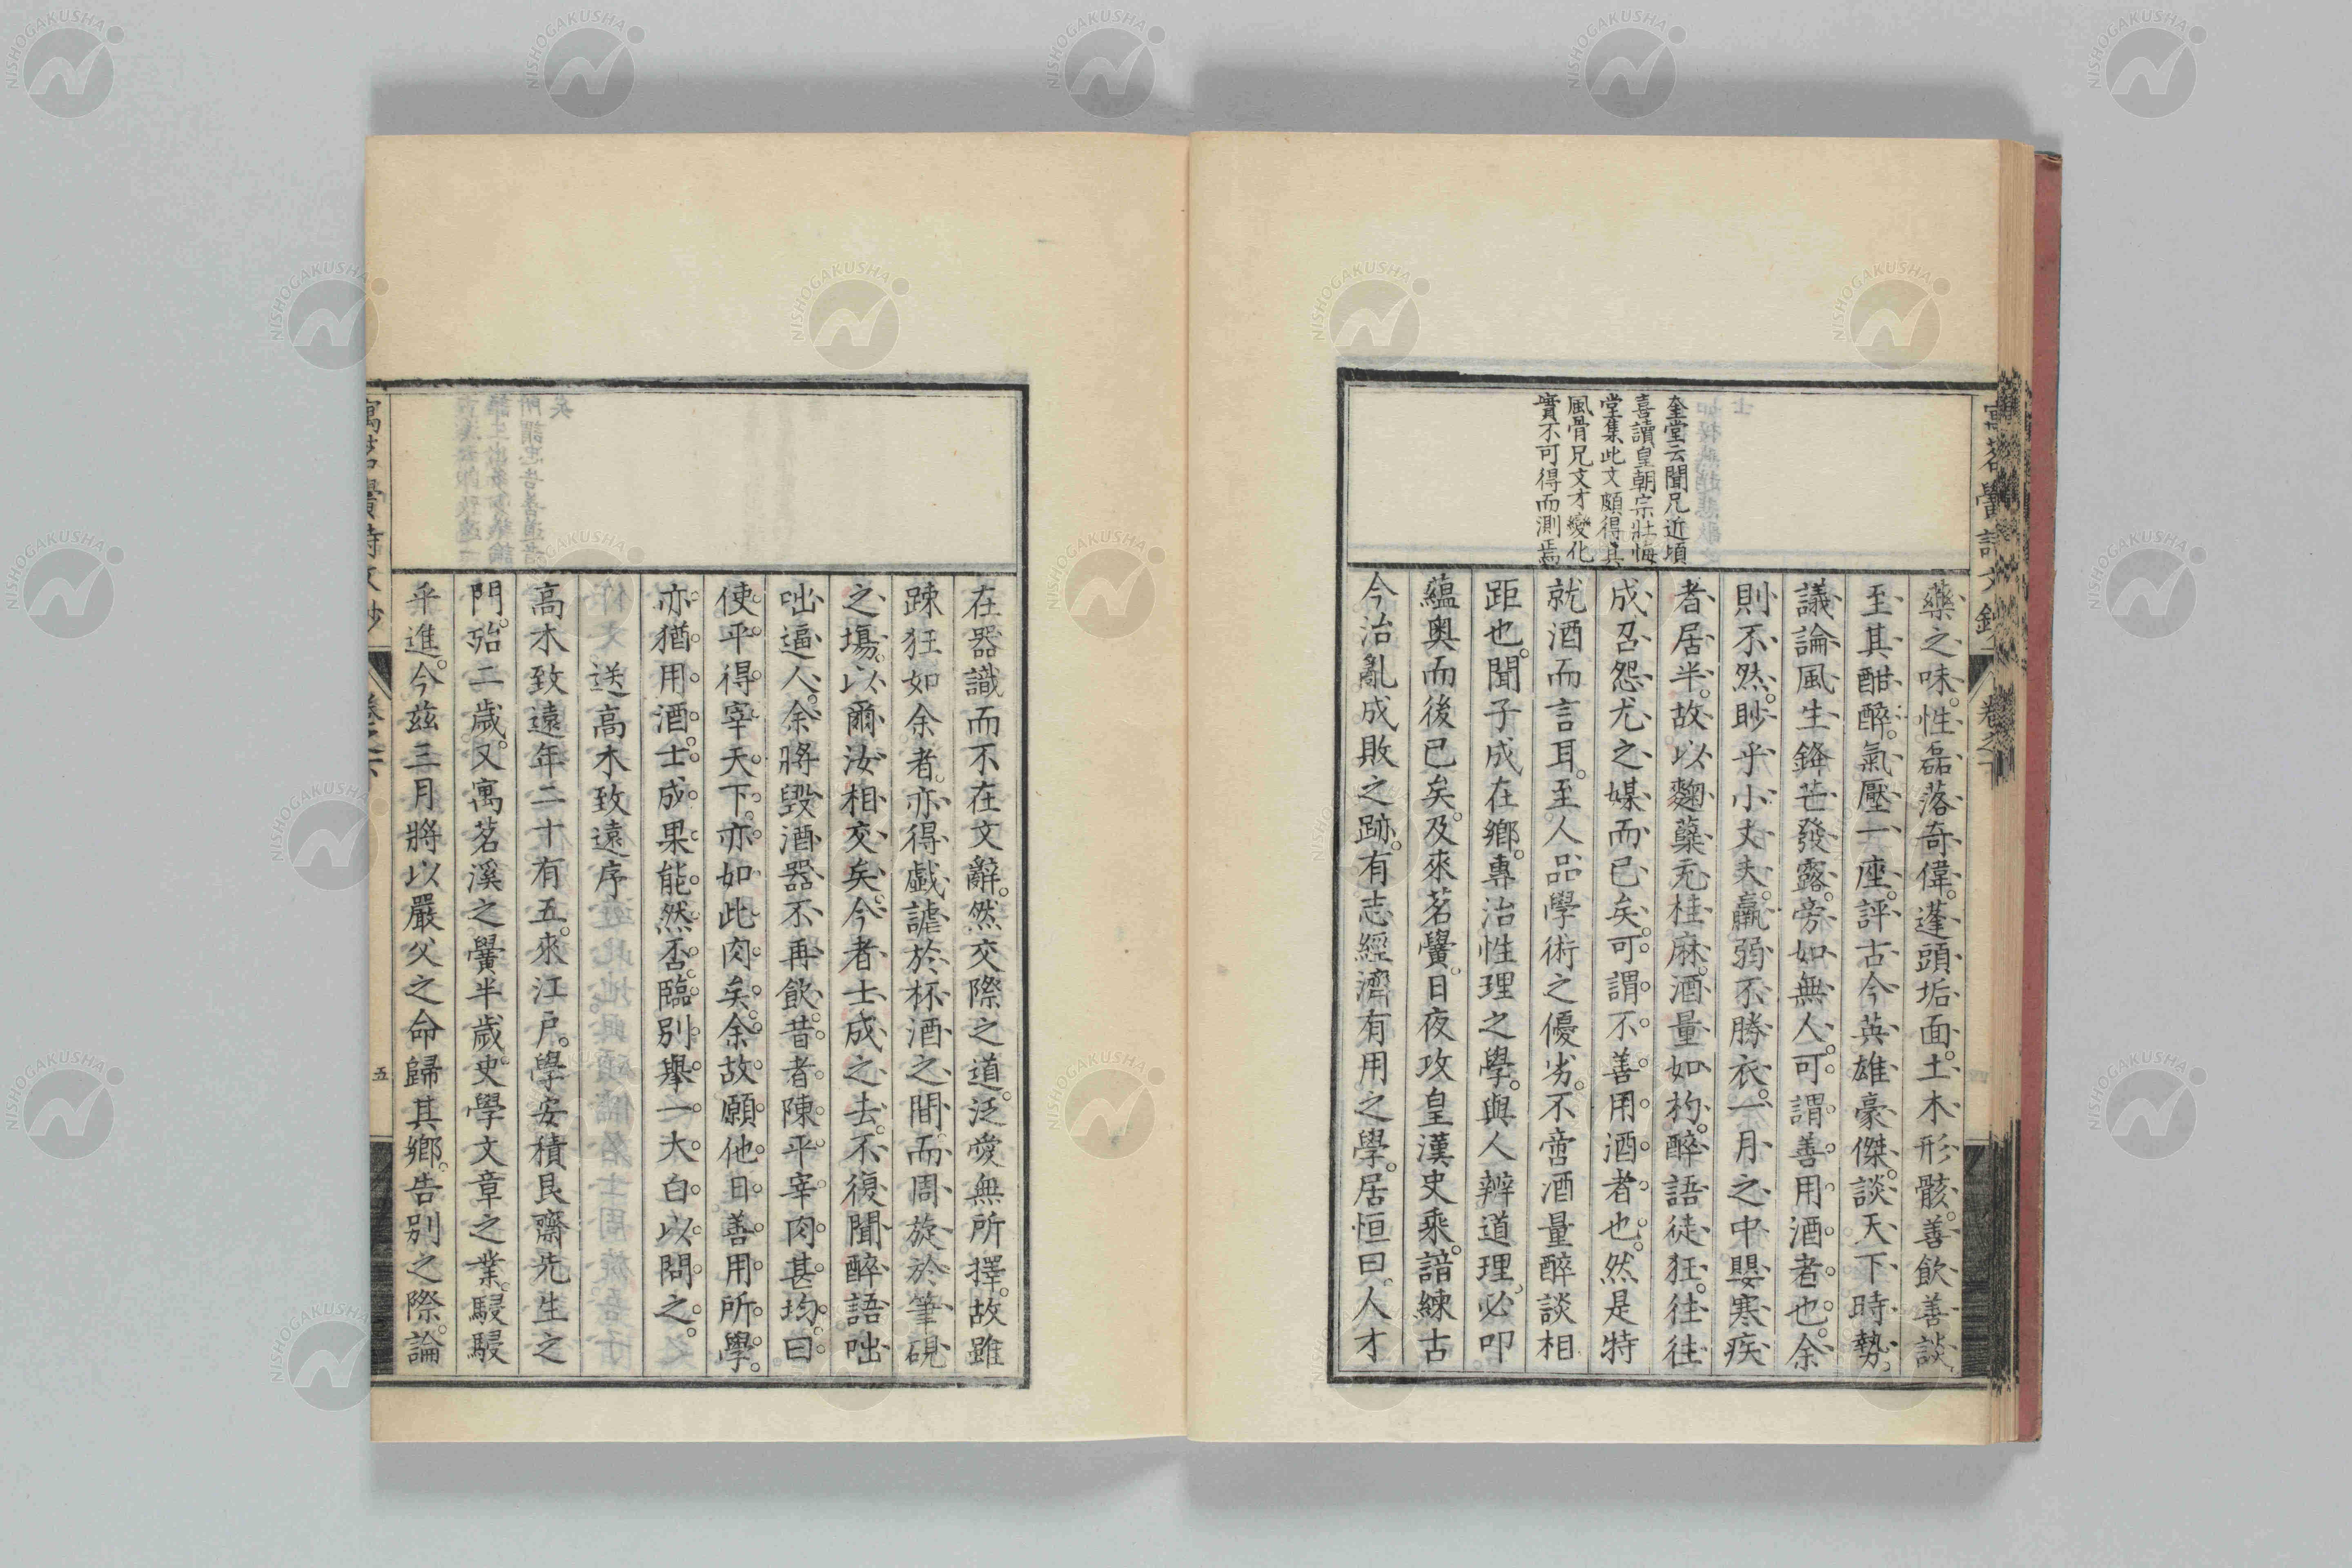 奎堂云聞兄近頃
喜讀皇朝宗壯悔
堂集此文頗得其
風骨兄文才變化
實不可得而測焉
藥之味。性磊落奇偉。蓬頭垢面。土木形骸。善飲善談、
至其酣醉。氣壓一座。評古今英雄豪傑。談天下時勢。
議論風生鋒芒發露。旁如無人。可謂善用酒者也。余
則不然。眇乎小丈夫。羸弱不勝衣。一月之中嬰寒疾
者居半。故以麴蘗无桂麻。酒量如杓。醉語徒狂。往往
成召怨尤之媒而已矣。可謂不善用酒者也。然是特
就酒而言耳。至人品學術之優劣。不啻酒量醉談相
距也。聞子成在鄉。專治性理之學。與人辨道理。必叩
蘊奧而後已矣。及來茗黌。日夜攻皇漢史乘。諳練古
今治亂成敗之跡。有志經濟有用之學。居恒曰。人才
在器識而不在文辭。然交際之道。泛愛無所擇。故雖
踈狂如余者。亦得戲謔於杯酒之間。而周旋於筆硯
之塲。以爾汝相交矣。今者士成之去。不復聞醉語咄
咄逼人。余將毀酒器不再飲。昔者陳平宰肉甚均。曰
使平得宰天下。亦如此肉矣。余故願他日善用所學。
亦猶用酒。士成果能然否。臨別舉一大白以問之。
送高木致遠序
高木致遠年二十有五。來江戶。學安積艮齋先生之
門。殆二歲。又寓茗溪之黌半歲。史學文章之業。駸駸
乎進。今茲三月將以嚴父之命歸其鄉。告別之際。論
五